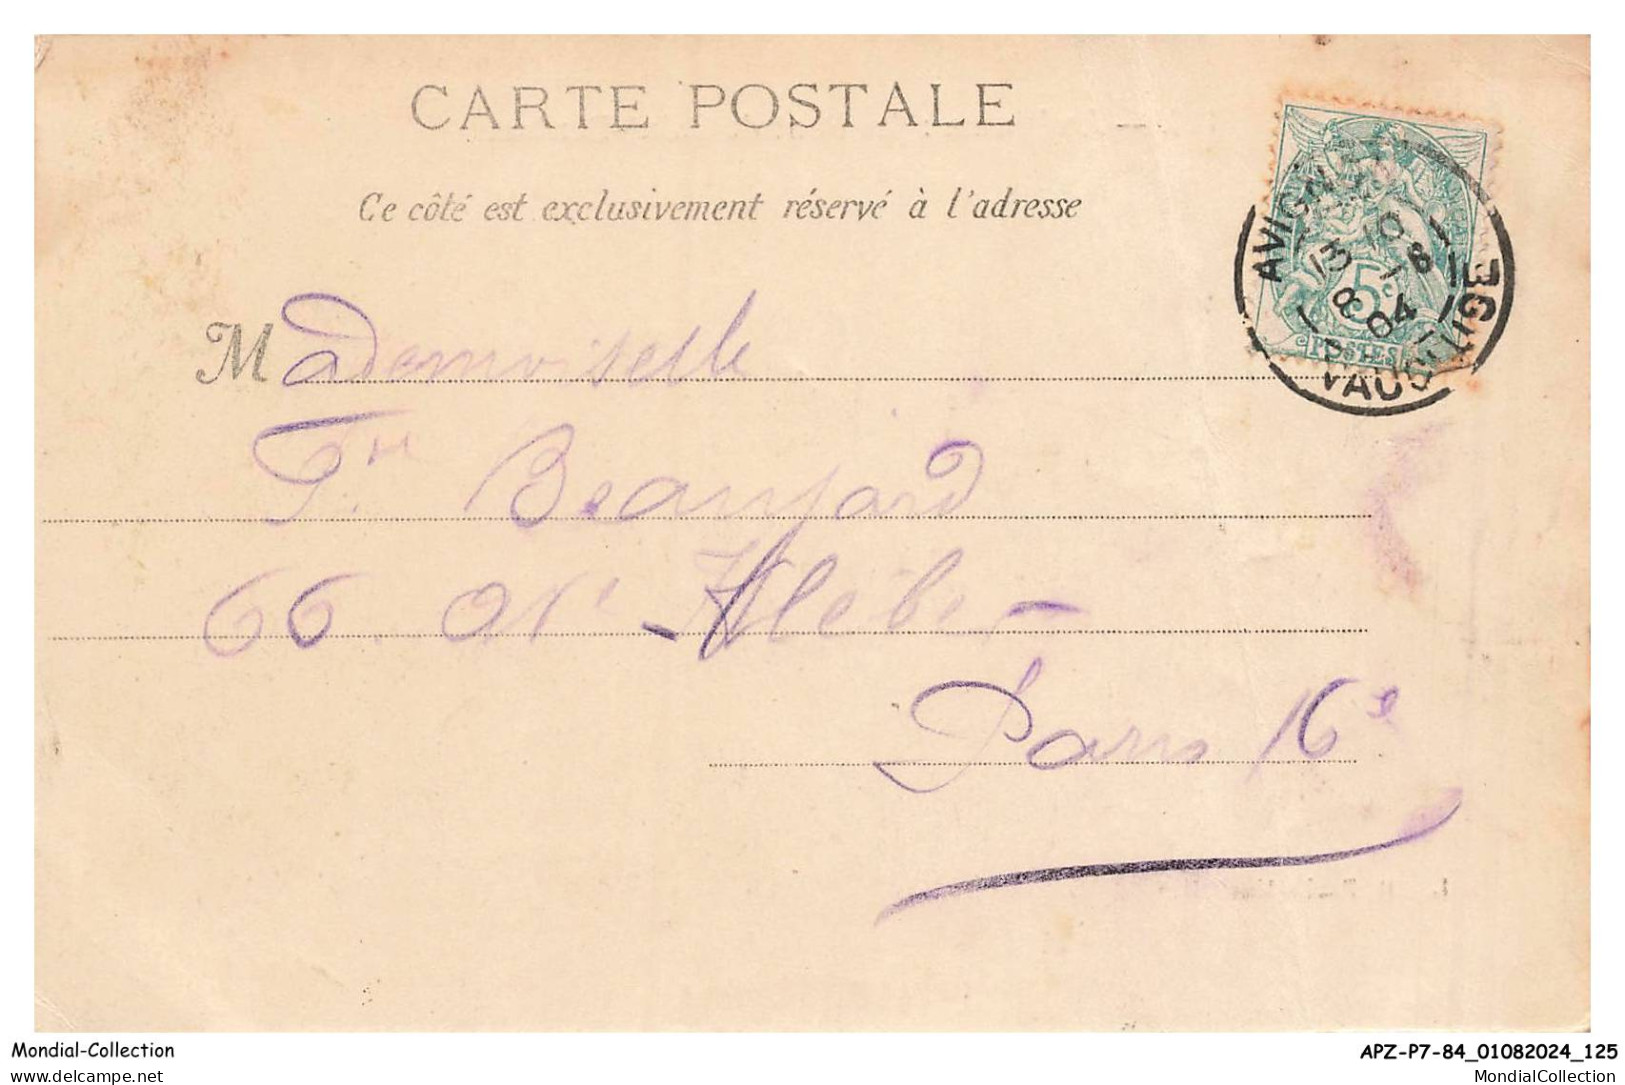 CARTE POSTALE
Ce côté est exclusivement réservé à l'adresse
AVIGNON
13 10
8 -8
04
VAUCLUSE
5c
POSTES
Mademoiselle
Th. Beaujard
66. Av Kléber -
Paris 16e
Mondial-Collection
APZ-P7-84_01082024_125
mondial-collection.delcampe.net
MondialCollection